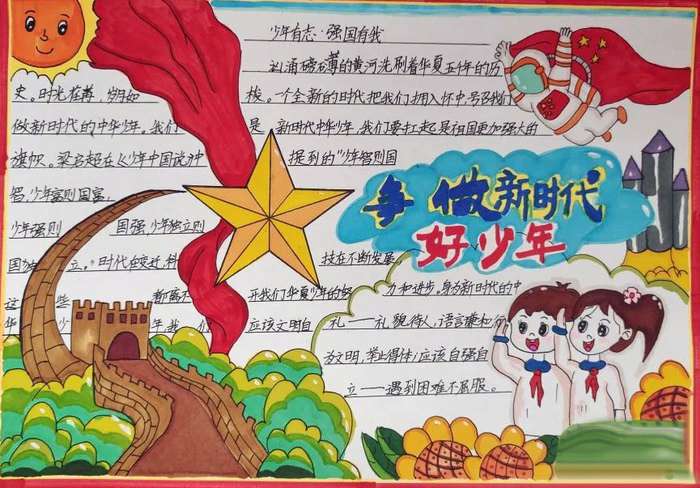 少年有志·强国有我
汹涌磅礴的黄河洗刷着华夏五千年的历
史。时光荏苒，岁月如 梭。一个全新的时代把我们拥入怀中号召我们
做新时代的中华少年。我们 是新时代中华少年，我们要扛起是祖国更加强大的
旗帜。梁启超在《少年中国说》中 提到的"少年智则国
智，少年富则国富，
少年强则 国强，少年独立则
国 立。"时代在变迁，科 技在不断发展。
这 些 都离不 开我们华夏少年的努 力和进步。身为新时代的中
华 年，我们 应该文明自 礼——礼貌待人，语言谦和行
为文明，举止得体；应该自强自
立——遇到困难不屈服。
争做新时代
好少年